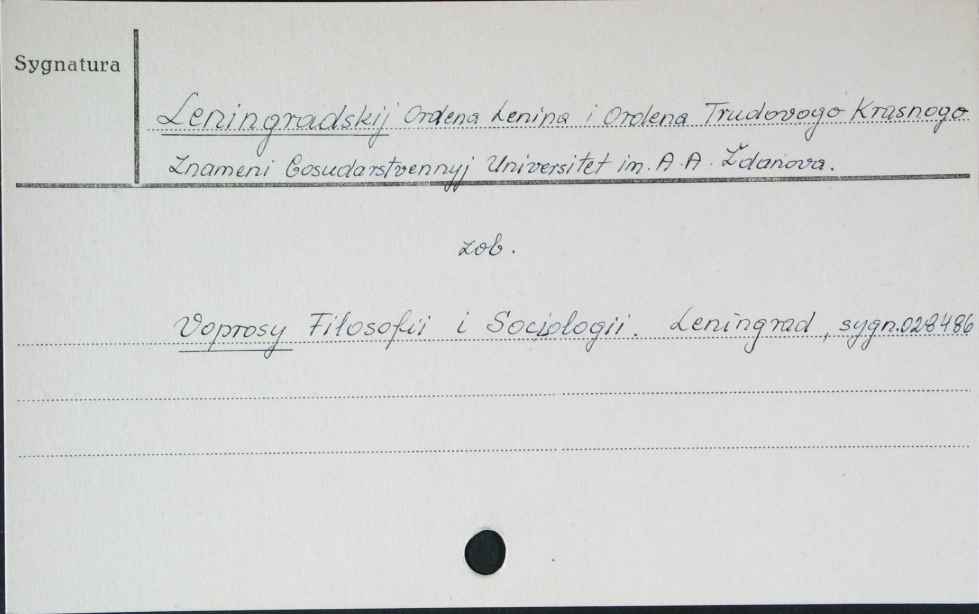 Sygnatura
Leningradskij Ordena Lenina i Ordena Trudovogo Krasnogo
Znameni Gosudarstvennyj Universitet im. A. A. Ždanova.
zob.
Voprosy Fiłosofii i Sociologii. Leningrad, sygn.028486